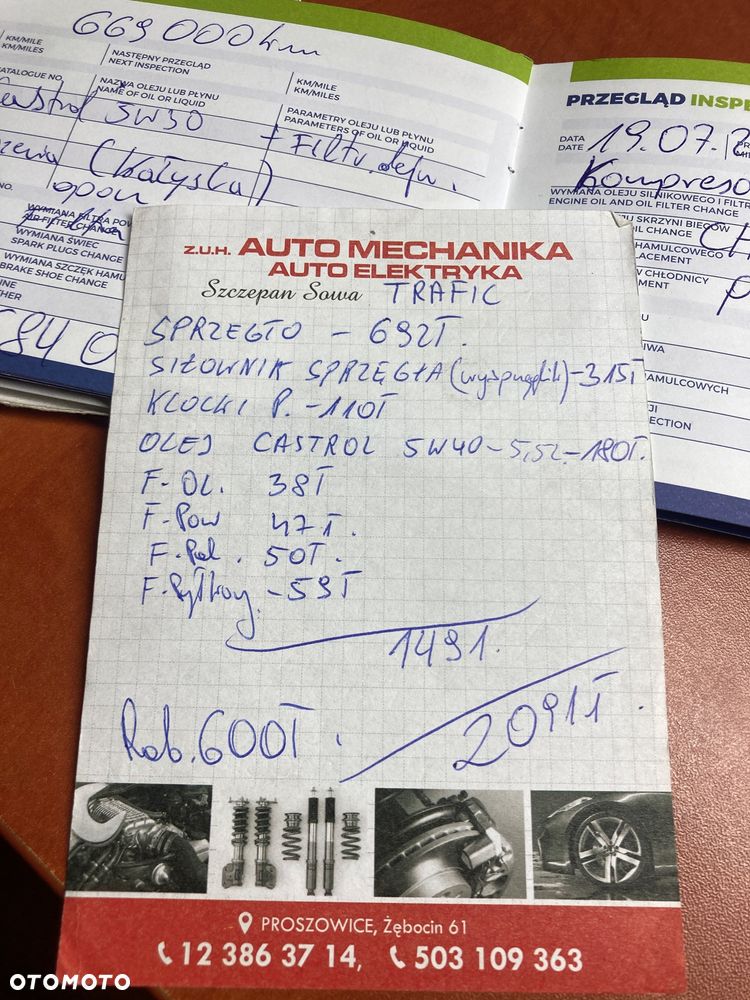 669 000 km
KM/MILE
KM/MILES
NASTĘPNY PRZEGLĄD
NEXT INSPECTION
KM/MILE
KM/MILES
CATALOGUE NO
NAZWA OLEJU LUB PŁYNU
NAME OF OIL OR LIQUID
PARAMETRY OLEJU LUB PŁYNU
PARAMETERS OF OIL OR LIQUID
5W30
+ Filtr.
NO.
opon
WYMIANA FILTRA POW
AIR FILTER CHANGE
WYMIANA ŚWIEC
SPARK PLUGS CHANGE
WYMIANA SZCZĘK HAMU
BRAKE SHOE CHANGE
PRZEGLĄD INSPE
DATA
DATE
19.07.
WYMIANA OLEJU SILNIKOWEGO I FILTR
ENGINE OIL AND OIL FILTER CHANGE
OLEJU SKRZYNI BIEGÓW
OIL CHANGE
HAMULCOWEGO
LACEMENT
W CHŁODNICY
EMENT
HAMULCOWYCH
Z.U.H. AUTO MECHANIKA
AUTO ELEKTRYKA
Szczepan Sowa TRAFIC
SPRZĘGŁO - 692T.
SIŁOWNIK SPRZĘGŁA (wysprzęglik) - 315T
KLOCKI P. - 110T
OLEJ CASTROL 5W40 - 5,5L - 180T.
F-OL. 38T
F-Pow 47T.
F-Pal. 50T.
F-Pyłkowy - 59T
1491.
Rob. 600T.
2091T.
PROSZOWICE, Żębocin 61
12 386 37 14, 503 109 363
OTOMOTO